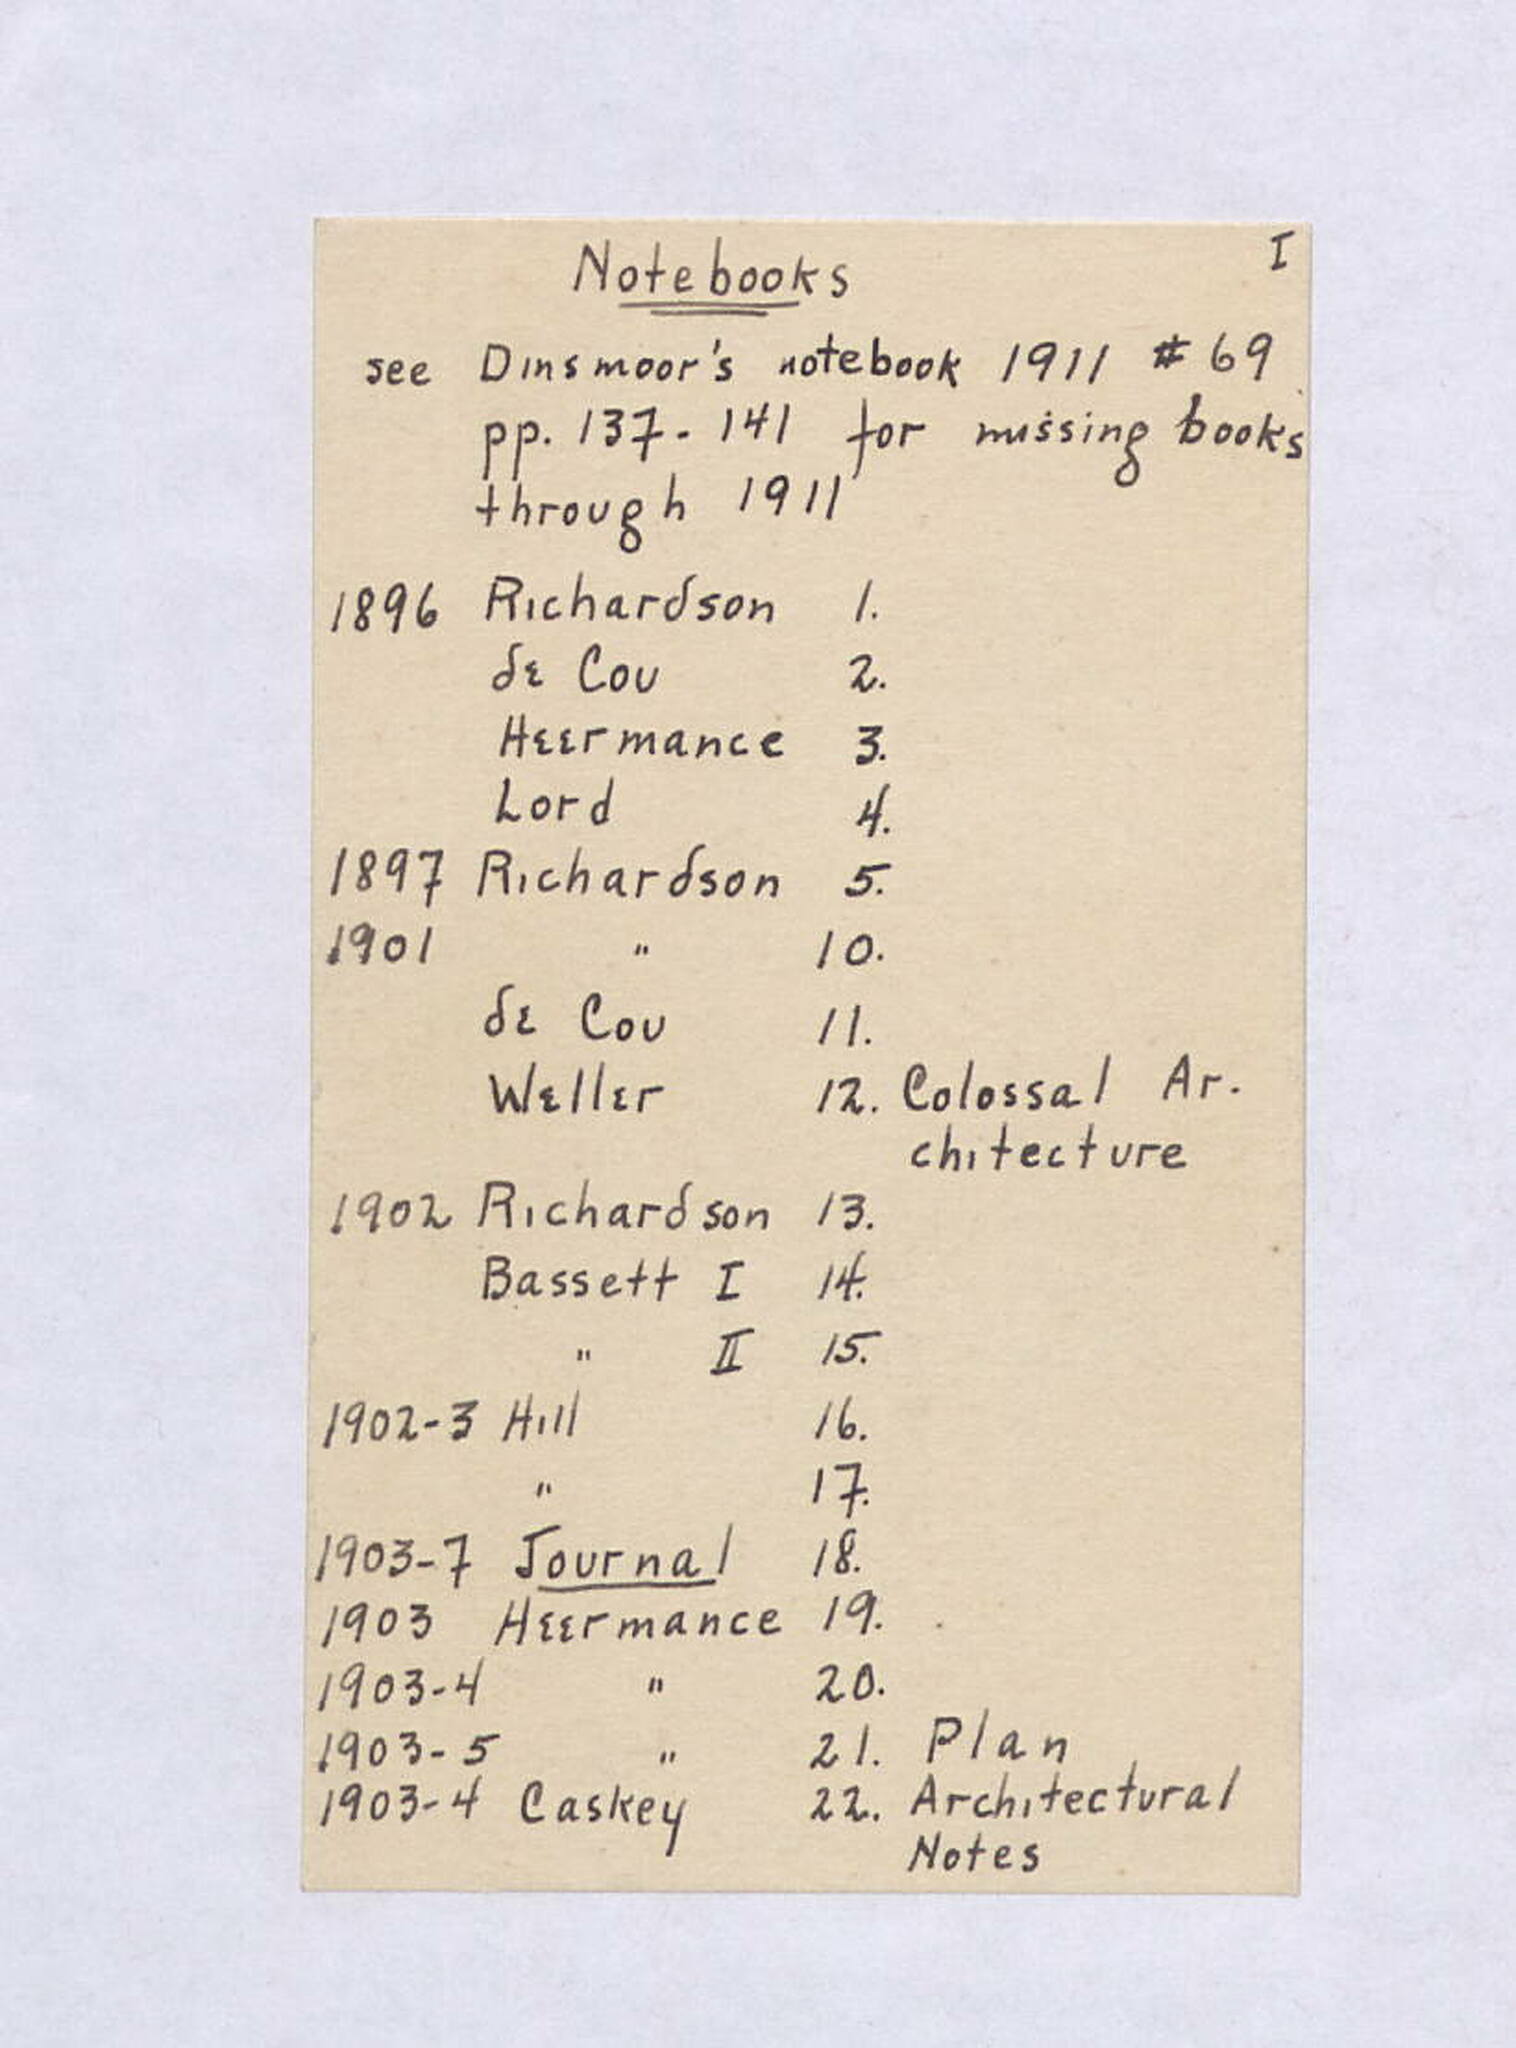 I
Notebooks
see Dinsmoor's notebook 1911 #69
pp. 137-141 for missing books
through 1911
1896 Richardson 1.
de Cou 2.
Heermance 3.
Lord 4.
1897 Richardson 5.
1901 " 10.
de Cou 11.
Weller 12. Colossal Ar-
chitecture
1902 Richardson 13.
Bassett I 14.
" II 15.
1902-3 Hill 16.
" 17.
1903-7 Journal 18.
1903 Heermance 19.
1903-4 " 20.
1903-5 " 21. Plan
1903-4 Caskey 22. Architectural
Notes